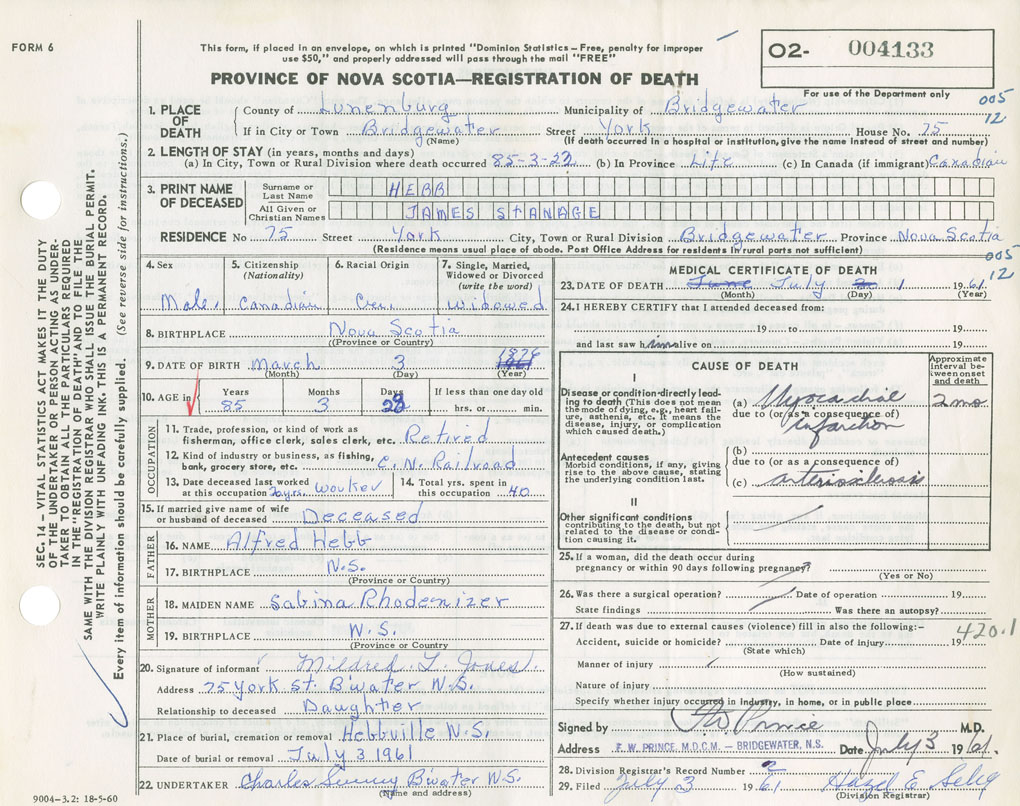 FORM 6
This form, if placed in an envelope, on which is printed "Dominion Statistics – Free, penalty for improper
use $50," and properly addressed will pass through the mail "FREE"
PROVINCE OF NOVA SCOTIA—REGISTRATION OF DEATH
O2- 004133
For use of the Department only
005
12
1. PLACE OF DEATH County of Lunenburg Municipality of Bridgewater
If in City or Town Bridgewater Street York House No. 75
(Name) (If death occurred in a hospital or institution, give the name instead of street and number)
2. LENGTH OF STAY (in years, months and days)
(a) In City, Town or Rural Division where death occurred 85-3-22 (b) In Province Life (c) In Canada (if immigrant) Canadian
3. PRINT NAME OF DECEASED Surname or Last Name HEBB
All Given or Christian Names JAMES STANAGE
RESIDENCE No 75 Street York City, Town or Rural Division Bridgewater Province Nova Scotia
(Residence means usual place of abode. Post Office Address for residents in rural parts not sufficient)
005
12
4. Sex 5. Citizenship (Nationality) 6. Racial Origin 7. Single, Married, Widowed or Divorced (write the word)
Male Canadian widowed
8. BIRTHPLACE Nova Scotia
(Province or Country)
9. DATE OF BIRTH March 3 1876 1961
(Month) (Day) (Year)
10. AGE in Years Months Days If less than one day old
85 3 28 hrs. or min.
OCCUPATION
11. Trade, profession, or kind of work as
fisherman, office clerk, sales clerk, etc. Retired
12. Kind of industry or business, as fishing,
bank, grocery store, etc. C. N. Railroad
13. Date deceased last worked
at this occupation 20 yrs. worker
14. Total yrs. spent in
this occupation 40
15. If married give name of wife
or husband of deceased Deceased
FATHER
16. NAME Alfred Hebb
17. BIRTHPLACE N.S.
(Province or Country)
MOTHER
18. MAIDEN NAME Sabina Rhodenizer
19. BIRTHPLACE N.S.
(Province or Country
20. Signature of informant Mildred L. Jones
Address 75 York St. B'water N.S.
Relationship to deceased Daughter
21. Place of burial, cremation or removal Hebbville N.S.
Date of burial or removal July 3 1961
22. UNDERTAKER Charles B'water N.S.
(Name and address)
9004-3.2: 18-5-60
MEDICAL CERTIFICATE OF DEATH
23. DATE OF DEATH June July 2 1 1961
(Month) (Day) (Year)
24. I HEREBY CERTIFY that I attended deceased from:
19 to 19
and last saw him alive on 19
CAUSE OF DEATH
Approximate
Interval between
onset
and death
I
Disease or condition directly leading
to death (This does not mean
the mode of dying, e.g., heart failure,
asthenia, etc. It means the
disease, injury, or complication
which caused death.)
(a) Myocardial 2 mo
due to (or as a consequence of)
infarction
Antecedent causes
Morbid conditions, if any, giving
rise to the above cause, stating
the underlying condition last.
(b)
due to (or as a consequence of)
(c) arteriosclerosis
II
Other significant conditions
contributing to the death, but not
related to the disease or condition
causing it.
25. If a woman, did the death occur during
pregnancy or within 90 days following pregnancy?
(Yes or No)
26. Was there a surgical operation? Date of operation 19
State findings Was there an autopsy?
27. If death was due to external causes (violence) fill in also the following:– 420.1
Accident, suicide or homicide? Date of injury 19
(State which)
Manner of injury
(How sustained)
Nature of injury
Specify whether injury occurred in industry, in home, or in public place
Signed by F W Prince M.D.
Address F. W. PRINCE, M.D.C.M. – BRIDGEWATER, N.S. Date July 3 1961.
28. Division Registrar's Record Number 2
29. Filed July 3 1961 Hazel E.
(Division Registrar)
SEC. 14 – VITAL STATISTICS ACT MAKES IT THE DUTY
OF THE UNDERTAKER OR PERSON ACTING AS UNDERTAKER
TO OBTAIN ALL THE PARTICULARS REQUIRED
IN THE "REGISTRATION OF DEATH" AND TO FILE THE
SAME WITH THE DIVISION REGISTRAR WHO SHALL ISSUE THE BURIAL PERMIT.
WRITE PLAINLY WITH UNFADING INK. THIS IS A PERMANENT RECORD.
Every item of information should be carefully supplied. (See reverse side for instructions.)